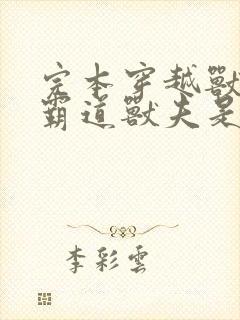 完本穿越獸
霸道獸夫是
李彩雲